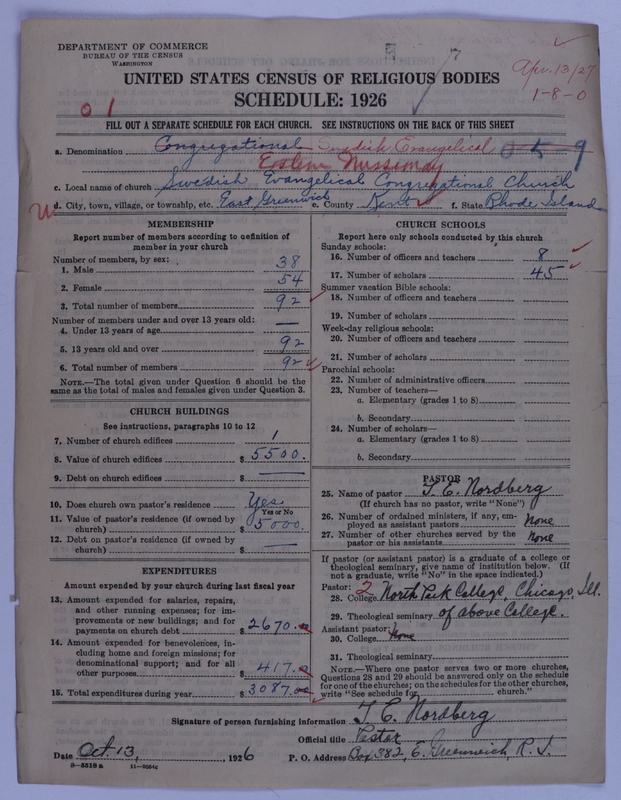 DEPARTMENT OF COMMERCE
BUREAU OF THE CENSUS
WASHINGTON
Apr. 13/27
1-8-0
UNITED STATES CENSUS OF RELIGIOUS BODIES
SCHEDULE: 1926
0 1
FILL OUT A SEPARATE SCHEDULE FOR EACH CHURCH. SEE INSTRUCTIONS ON THE BACK OF THIS SHEET
a. Denomination Congregational Swedish Evangelical
Eastern Missionary
c. Local name of church Swedish Evangelical Congregational Church
d. City, town, village, or township, etc. East Greenwich e. County Kent f. State Rhode Island
MEMBERSHIP
Report number of members according to definition of
member in your church
Number of members, by sex:
1. Male 38
2. Female 54
3. Total number of members 92
Number of members under and over 13 years old:
4. Under 13 years of age —
5. 13 years old and over 92
6. Total number of members 92
NOTE.—The total given under Question 6 should be the
same as the total of males and females given under Question 3.
CHURCH BUILDINGS
See instructions, paragraphs 10 to 12
7. Number of church edifices 1
8. Value of church edifices $ 5500.
9. Debt on church edifices $ —
10. Does church own pastor's residence Yes
Yes or No
11. Value of pastor's residence (if owned by
church) $ 5000.
12. Debt on pastor's residence (if owned by
church) $ —
EXPENDITURES
Amount expended by your church during last fiscal year
13. Amount expended for salaries, repairs,
and other running expenses; for im-
provements or new buildings; and for
payments on church debt $ 2670.00
14. Amount expended for benevolences, in-
cluding home and foreign missions; for
denominational support; and for all
other purposes $ 417.00
15. Total expenditures during year $ 3087.00
CHURCH SCHOOLS
Report here only schools conducted by this church
Sunday schools:
16. Number of officers and teachers 8
17. Number of scholars 45
Summer vacation Bible schools:
18. Number of officers and teachers
19. Number of scholars
Week-day religious schools:
20. Number of officers and teachers
21. Number of scholars
Parochial schools:
22. Number of administrative officers
23. Number of teachers—
a. Elementary (grades 1 to 8)
b. Secondary
24. Number of scholars—
a. Elementary (grades 1 to 8)
b. Secondary
PASTOR
25. Name of pastor T. E. Nordberg
(If church has no pastor, write "None")
26. Number of ordained ministers, if any, em-
ployed as assistant pastors None
27. Number of other churches served by the
pastor or his assistants None
If pastor (or assistant pastor) is a graduate of a college or
theological seminary, give name of institution below. (If
not a graduate, write "No" in the space indicated.)
Pastor: 2
28. College North Park College, Chicago, Ill.
29. Theological seminary of above College.
Assistant pastor:
30. College None
31. Theological seminary
NOTE.—Where one pastor serves two or more churches,
Questions 28 and 29 should be answered only on the schedule
for one of the churches; on the schedules for the other churches,
write "See schedule for church."
Signature of person furnishing information T. E. Nordberg
Official title Pastor
Date Oct. 13, 1926 P. O. Address Box 382, E. Greenwich, R. I.
8—5518 a 11—9554c